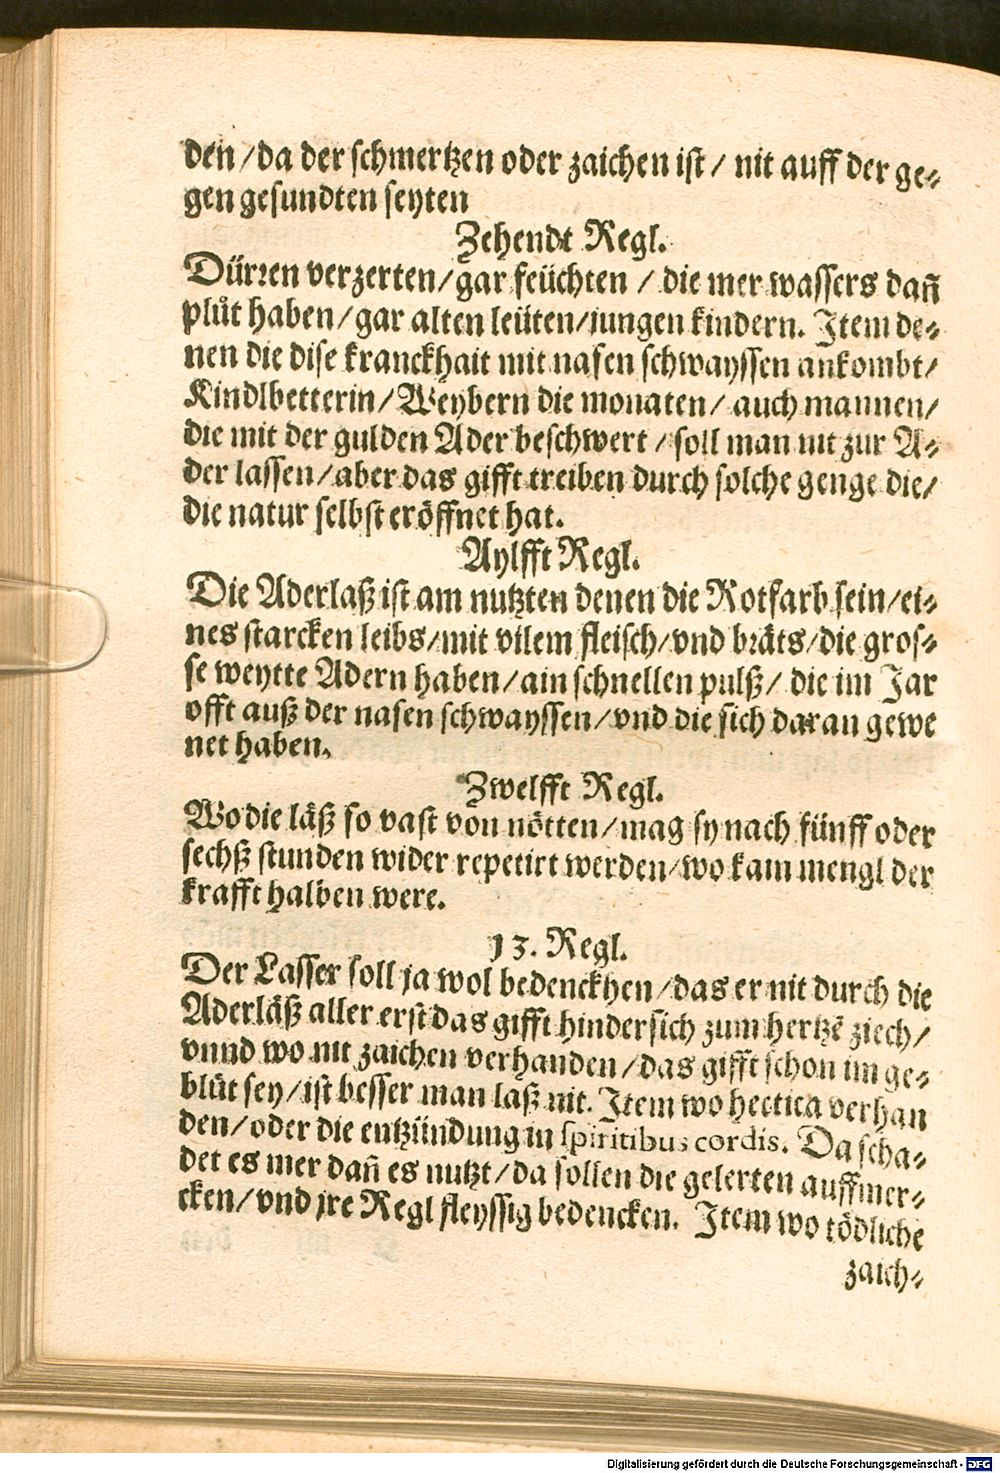 den / da der schmertzen oder zaichen ist / nit auff der ge⸗
gen gesundten seyten
Zehendt Regl.
Dürren verzerten / gar feüchten / die mer wassers dañ
plůt haben / gar alten leüten / jungen kindern. Item de⸗
nen die dise kranckhait mit nasen schwayssen ankombt /
Kindlbetterin / Weybern die monaten / auch mannen /
die mit der gulden Ader beschwert / soll man nit zur A⸗
der lassen / aber das gifft treiben durch solche genge die /
die natur selbst eröffnet hat.
Aylfft Regl.
Die Aderlaß ist am nutzten denen die Rotfarb sein / ei⸗
nes starcken leibs / mit vilem fleisch / vnd bräts / die gros⸗
se weytte Adern haben / ain schnellen pulß / die im Jar
offt auß der nasen schwayssen / vnd die sich daran gewe
net haben.
Zwelfft Regl.
Wo die läß so vast von nötten / mag sy nach fünff oder
sechß stunden wider repetirt werden / wo kain mengl der
krafft halben were.
13. Regl.
Der Lasser soll ja wol bedenckhen / das er nit durch die
Aderläß aller erst das gifft hindersich zum hertzẽ ziech /
vnnd wo nit zaichen verhanden / das gifft schon im ge⸗
blüt sey / ist besser man laß nit. Item wo hectica verhan
den / oder die entzündung in spiritibus cordis. Da scha⸗
det es mer dañ es nutzt / da sollen die gelerten auffmer⸗
cken / vnd jre Regl fleyssig bedencken. Item wo tödliche
zaich⸗
Digitalisierung gefördert durch die Deutsche Forschungsgemeinschaft - DFG